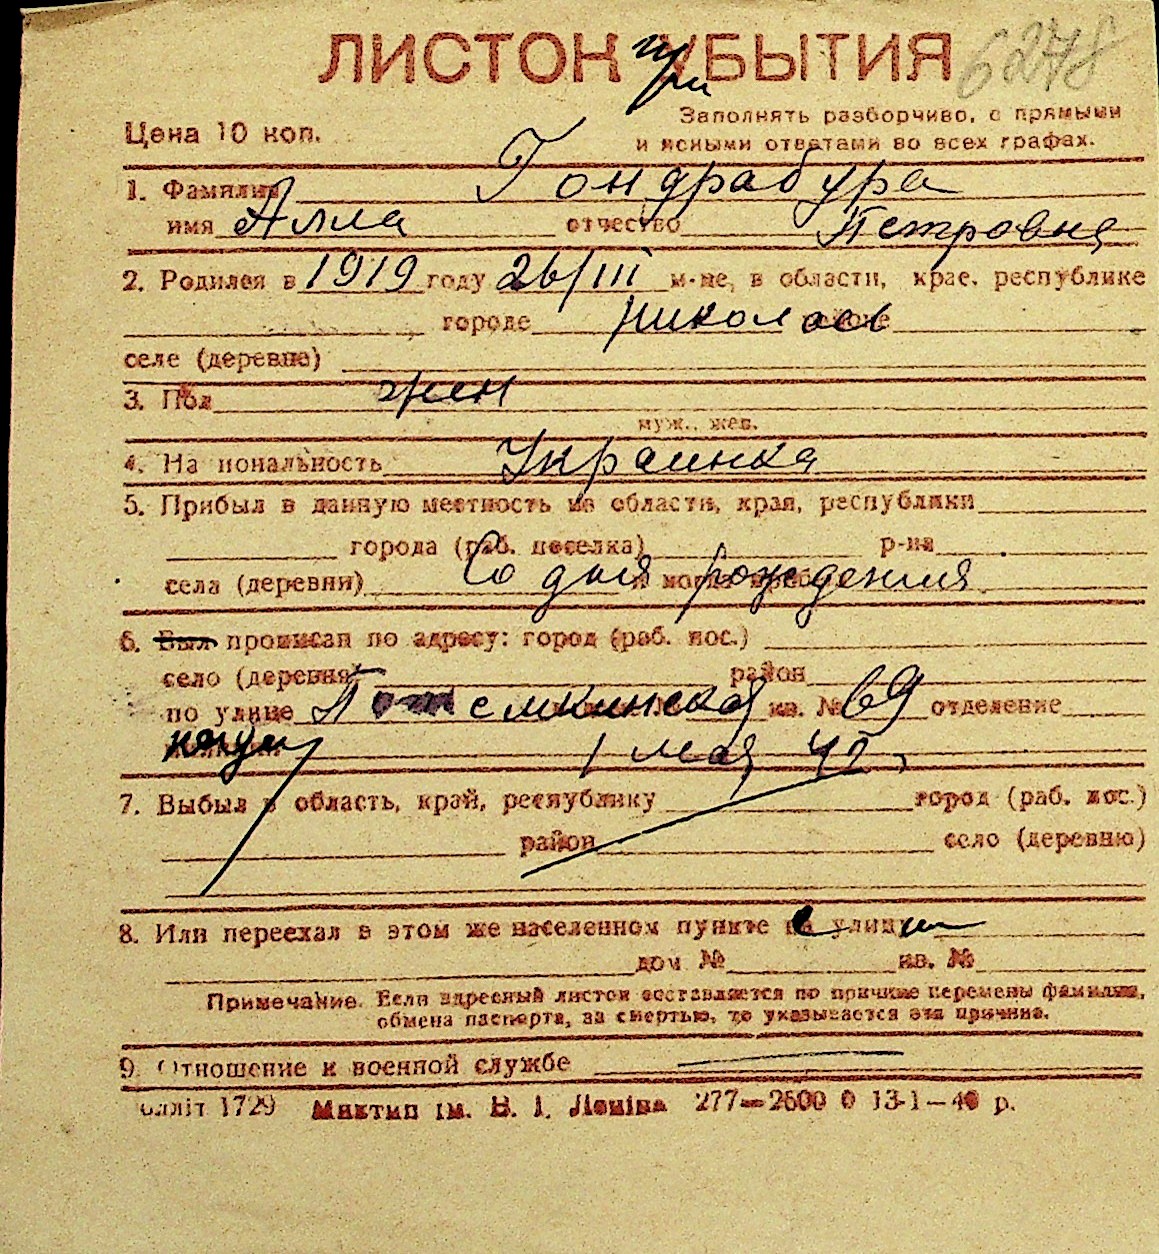 ЛИСТОК при УБЫТИЯ 6278
Заполнять разборчиво, с прямыми
Цена 10 коп. и ясными ответами во всех графах.
1. Фамилия Гондрабура
имя Алла отчество Петровна
2. Родился в 1919 году 26/III м-це, в области, крае, республике
городе Николаев районе
селе (деревне)
3. Пол жен
муж., жен.
4. На иональность Украинка
5. Прибыл в данную местность из области, края, республики
города (раб. поселка) р-на
села (деревни) Со дня рождения
6. Был прописан по адресу: город (раб. пос.)
село (деревня) район
по улице Потемкинская кв. № 69 отделение
милиции 1 мая
7. Выбыл в область, край, республику город (раб. пос.)
район село (деревню)
8. Или переехал в этом же населенном пункте с улицы
дом № кв. №
Примечание. Если адресный листок составляется по причине перемены фамилии,
обмена паспорта, за смертью, то указывается эта причина.
9. Отношение к военной службе
Миктип ім. В. І. Леніна 277—2600 0 13-1—40 р.